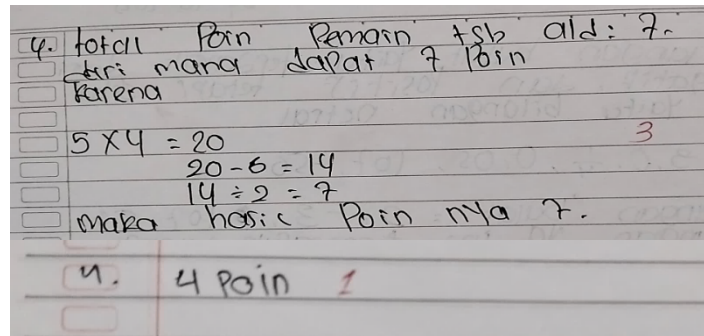 4. total Poin Pemain tsb ald: 7.
dari mana dapat 7 Poin
Karena
5 x 4 = 20
3
20 - 6 = 14
14 ÷ 2 = 7
maka hasil Poin nya 7.
4. 4 Poin 1